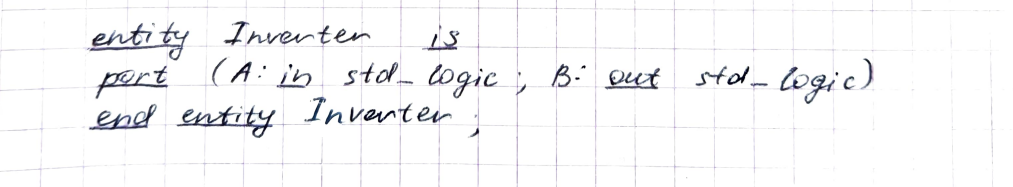 entity Inverter is
port (A: in std_logic; B: out std_logic)
end entity Inverter;